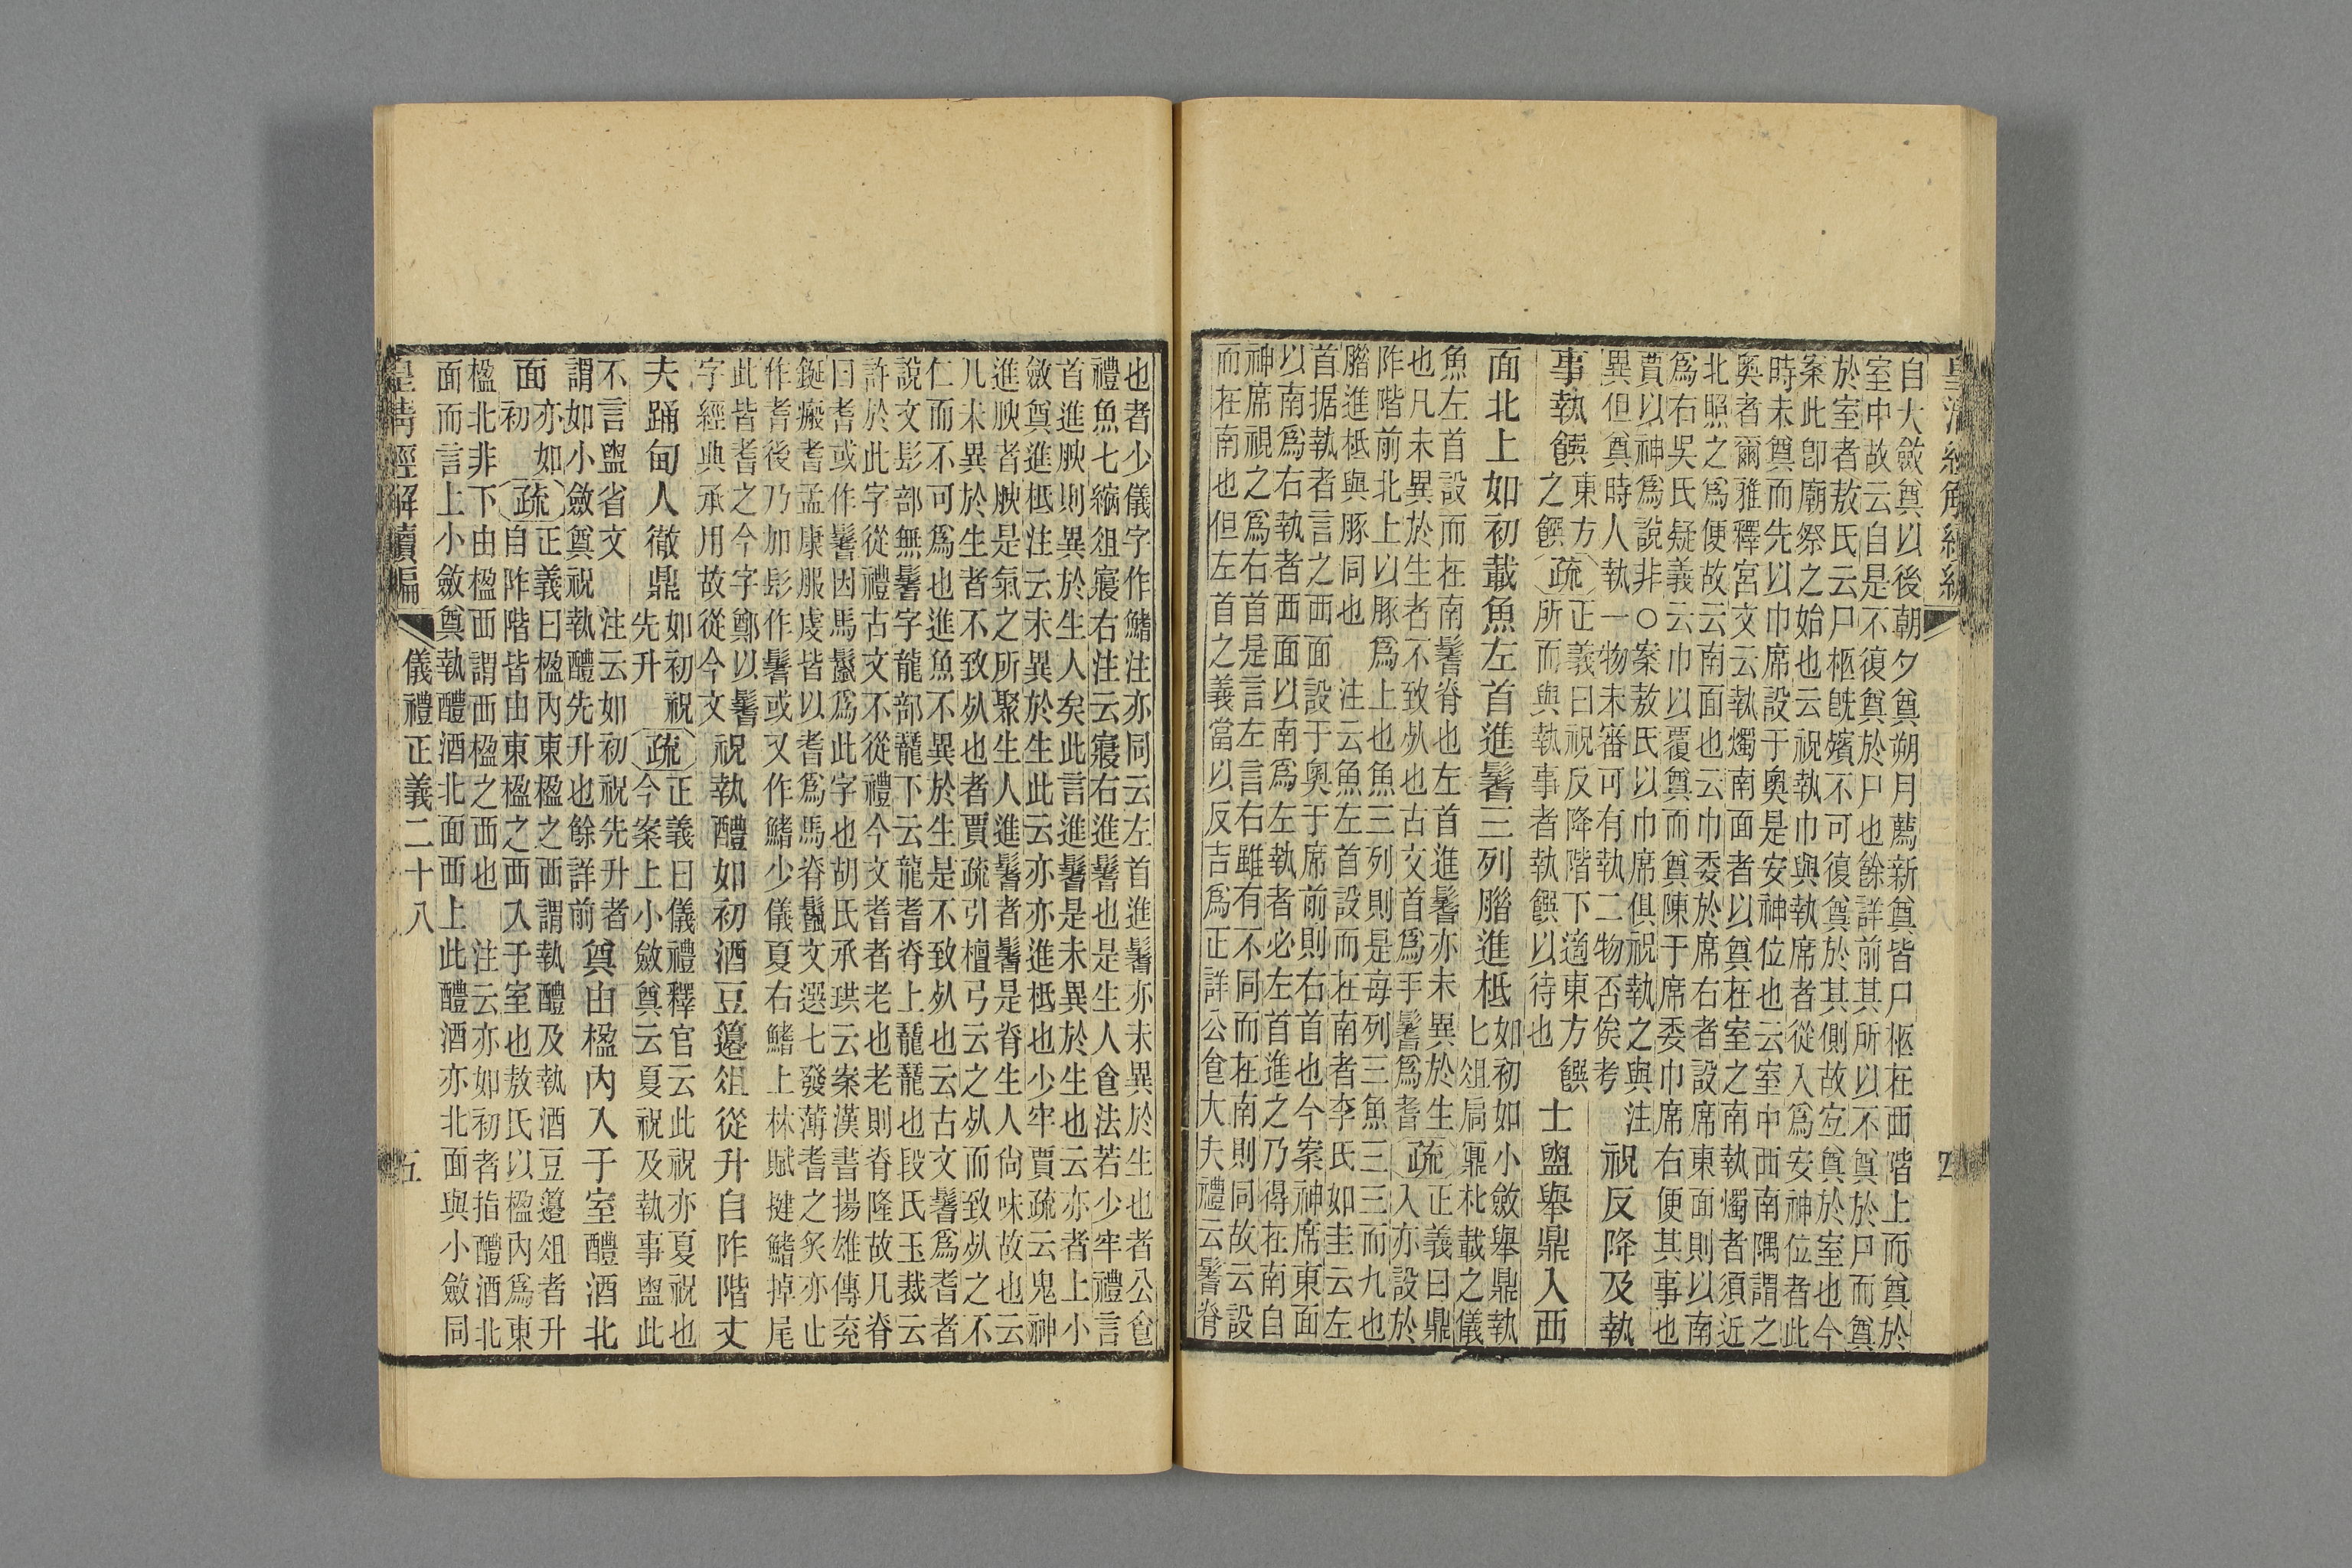 自大斂奠以後朝夕奠朔月薦新奠皆尸柩在西階上而奠於
室中故云自是不復奠於尸也餘詳前其所以不奠於尸而奠
於室者敖氏云尸柩旣殯不可復奠於其側故宐奠於室也今
案此卽廟祭之始也云祝執巾與執席者從入爲安神位者此
時未奠而先以巾席設于奧是安神位也云室中西南隅謂之
奧者爾雅釋宮文云執燭南面者以奠在室之南執燭者須近
北照之爲便故云南面也云巾委於席右者設席東面則以南
爲右吳氏疑義云巾以覆奠而奠陳于席委巾席右便其事也
賈以神爲說非○案敖氏以巾席俱祝執之與注
異但奠時人執一物未審可有執二物否俟考
祝反降及執
事執饌
東方
之饌
疏
正義曰祝反降階下適東方饌
所而與執事者執饌以待也
士盥舉鼎入西
面北上如初載魚左首進鬐三列腊進柢
如初如小斂舉鼎執
匕俎扃鼏朼載之儀
魚左首設而在南鬐脊也左首進鬐亦未異於生
也凡未異於生者不致死也古文首爲手鬐爲耆
疏
正義曰鼎
入亦設於
阼階前北上以豚爲上也魚三列則是每列三魚三三而九也
腊進柢與豚同也　注云魚左首設而在南者李氏如圭云左
首据執者言之西面設于奧于席前則右首也今案神席東面
以南爲右執者西面以南爲左執者必左首進之乃得在南自
神席視之爲右首是言左言右雖有不同而在南則同故云設
而在南也但左首之義當以反吉爲正詳公食大夫禮云鬐脊
也者少儀字作鰭注亦同云左首進鬐亦未異於生也者公食
禮魚七縮俎寢右注云寢右進鬐也是生人食法若少牢禮言
首進腴則異於生人矣此言進鬐是未異於生也云亦者上小
斂奠進柢注云未異於生此云亦亦進柢也少牢賈疏云鬼神
進腴者腴是氣之所聚生人進鬐者鬐是脊生人尙味故也云
凡未異於生者不致死也者賈疏引檀弓云之死而致死之不
仁而不可爲也進魚不異於生是不致死也云古文鬐爲耆者
說文髟部無鬐字龍部龖下云龍耆脊上龖龖也段氏玉裁云
許於此字從禮古文不從禮今文耆者老也老則脊隆故凡脊
曰耆或作鬐因馬鬣爲此字也胡氏承珙云案漢書揚雄傳兗
鋋瘢耆孟康服虔皆以耆爲馬脊鬣文選七發薄耆之炙亦止
作耆後乃加髟作鬐或又作鰭少儀夏右鰭上林賦揵鰭掉尾
此皆耆之今字鄭以鬐
字經典承用故從今文
祝執醴如初酒豆籩俎從升自阼階丈
夫踊甸人徹鼎
如初祝
先升
疏
正義曰儀禮釋官云此祝亦夏祝也
今案上小斂奠云夏祝及執事盥此
不言盥省文　注云如初祝先升者
謂如小斂奠祝執醴先升也餘詳前
奠由楹內入于室醴酒北
面
亦如
初
疏
正義曰楹內東楹之西謂執醴及執酒豆籩俎者升
自阼階皆由東楹之西入于室也敖氏以楹內爲東
楹北非下由楹西謂西楹之西也　注云亦如初者指醴酒北
面而言上小斂奠執醴酒北面西上此醴酒亦北面與小斂同
皇清經解續編
儀禮正義二十八
五